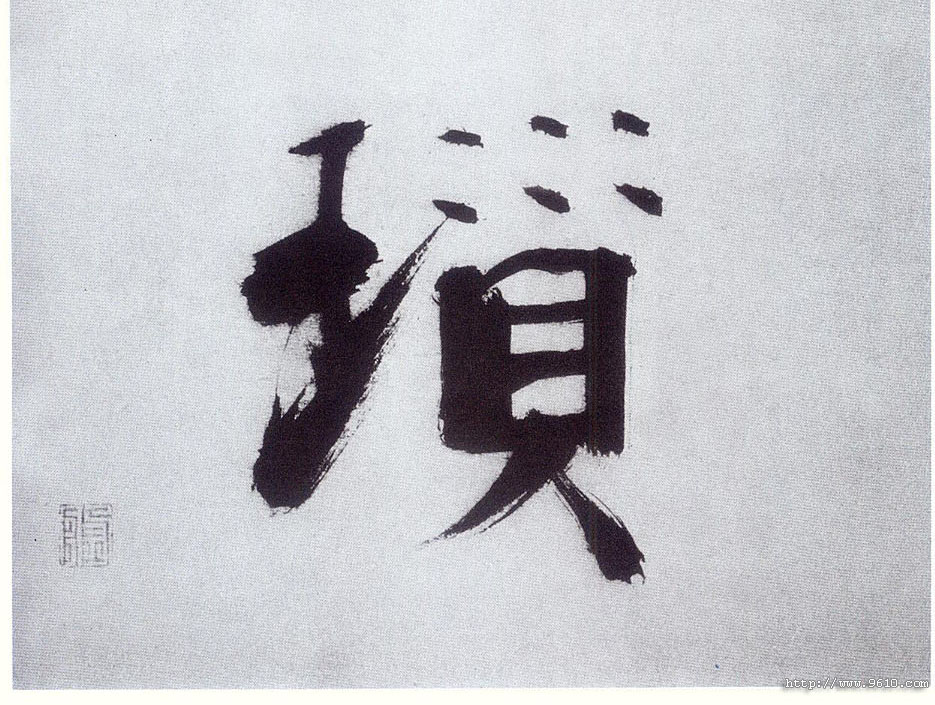 瑣
http://www.9610.com